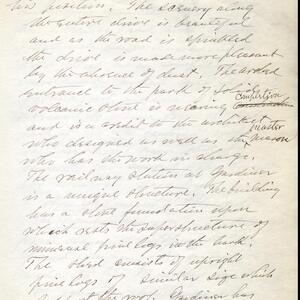 his position. The scenery along
the entire drive is beautiful
and as the road is sprinkled
the drive is made more pleasant
by the absence of dust. The arched
entrance to the park of solid
volcanic stone is nearing completion
and is a credit to the architect
who designed as well as the master mason
who has the work in charge.
The railway station at Gardiner
is a unique structure. The building
has a stone foundation upon
which rests the superstructure of
unusual pine logs in the bark.
The stond consists of upright
pine logs of similar size which
the roof. Gardiner has